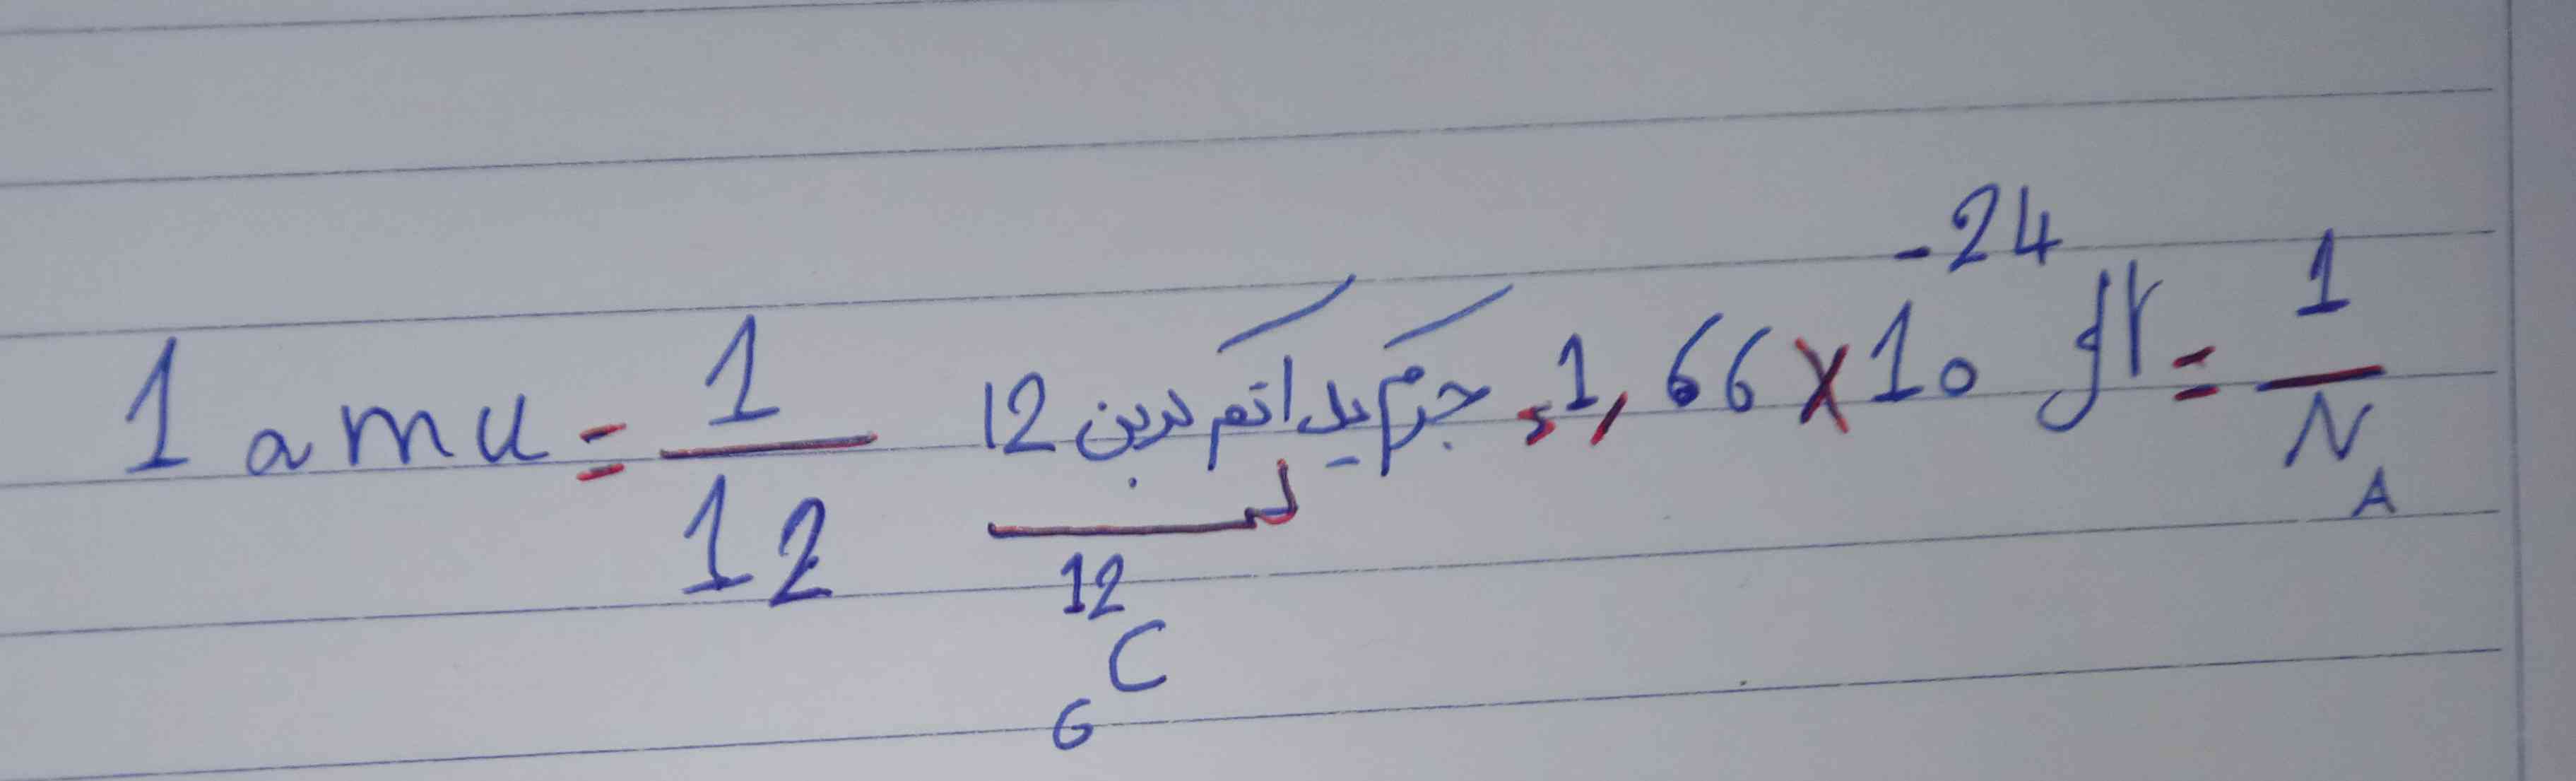 1 amu = 1/12 جرم یک اتم کربن 12 = 1,66 × 10^-24 gr = 1/N_A
12
C
6